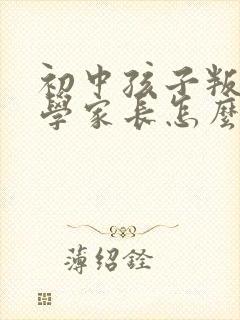 初中孩子叛
學家长怎麼
薄绍铨